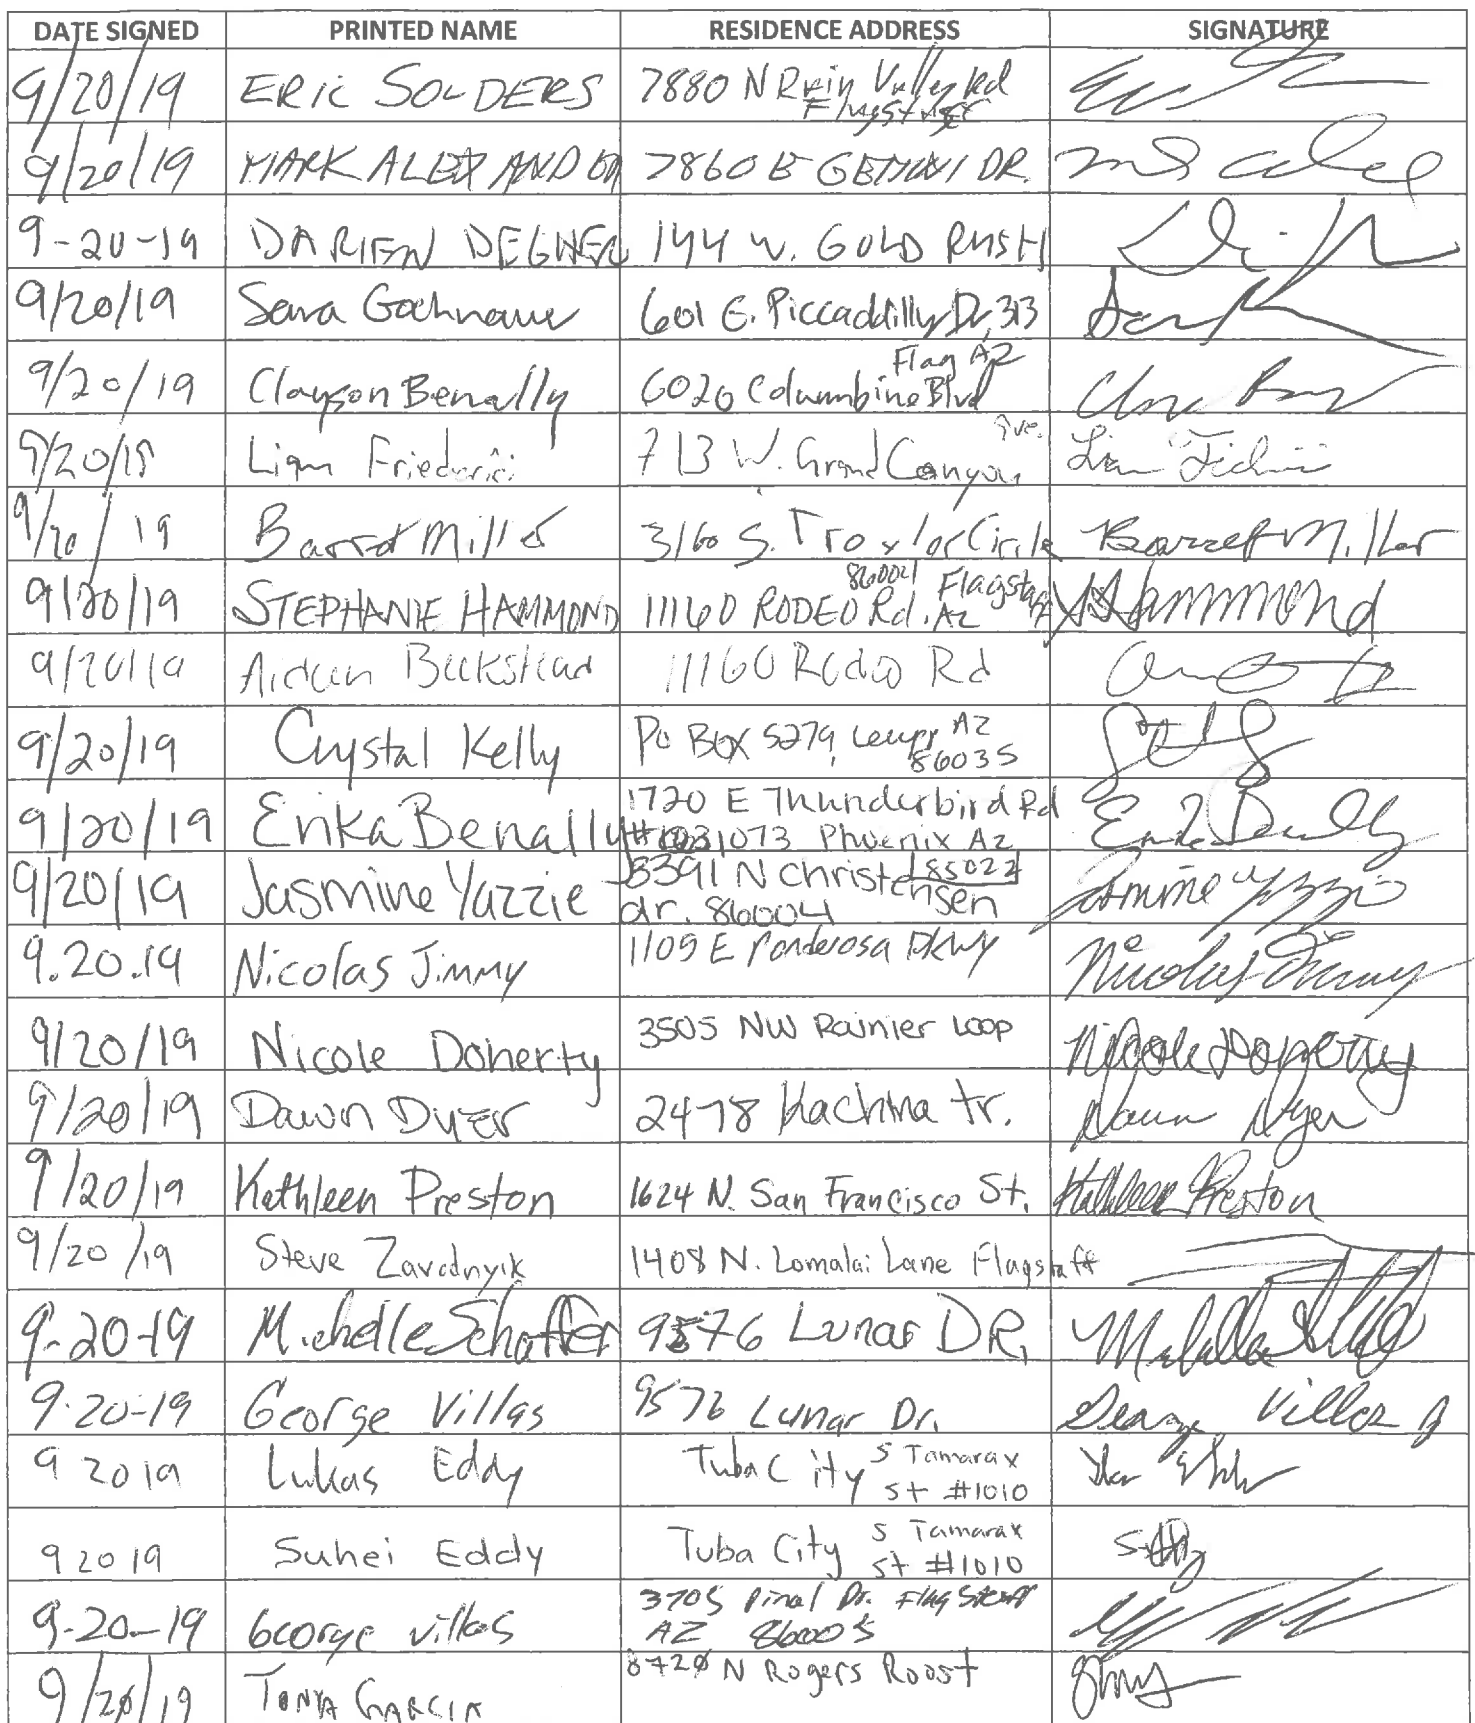 DATE SIGNED PRINTED NAME RESIDENCE ADDRESS SIGNATURE
9/20/19 ERIC SOLDERS 7880 N Rain Valley Rd
Flagstaff
9/20/19 MARK ALEXANDER 7860 E GEMINI DR.
9-20-19 DARIEN DEGHER 144 W. GOLD RUSH
9/20/19 Sara Gochnauer 601 E. Piccaddilly Dr, 313
Flag AZ
9/20/19 Clayson Benally 6020 Columbine Blvd
Ave.
9/20/19 Liam Friederici 713 W. Grand Canyon Liam
9/20/19 Barret Miller 3160 S. Troxler Circle Barret Miller
86004 Flagstaff
9/20/19 STEPHANIE HAMMOND 11160 RODEO Rd. AZ SHammond
9/20/19 Aideen Beckstead 11160 Rodeo Rd
9/20/19 Crystal Kelly Po Box 5279, Leupp AZ
86035
1720 E Thunderbird Rd
9/20/19 Erika Benally #1073 Phoenix AZ
85022
9/20/19 Jasmine Yazzie 8391 N Christensen Jasmine Yazzie
dr. 86004
9.20.19 Nicolas Jimmy 1109 E Ponderosa PKWY Nicolas Jimmy
9/20/19 Nicole Doherty 3505 NW Rainier Loop Nicole Doherty
9/20/19 Dawn Dyer 2478 Kachina tr. Dawn Dyer
9/20/19 Kathleen Preston 1624 N. San Francisco St. Kathleen Preston
9/20/19 Steve Zavodnyik 1408 N. Lomalai Lane Flagstaff
9-20-19 Michelle Schaffer 9576 Lunar DR,
9-20-19 George Villas 9576 Lunar Dr. George Villas
9 20 19 Lukas Eddy Tuba City S Tamarax
St #1010
9 20 19 Suhei Eddy Tuba City S Tamarax
St #1010
3705 Pinal Dr. Flagstaff
9-20-19 George villas AZ 86005
9/20/19 TONYA GARCIA 8720 N Rogers Roost